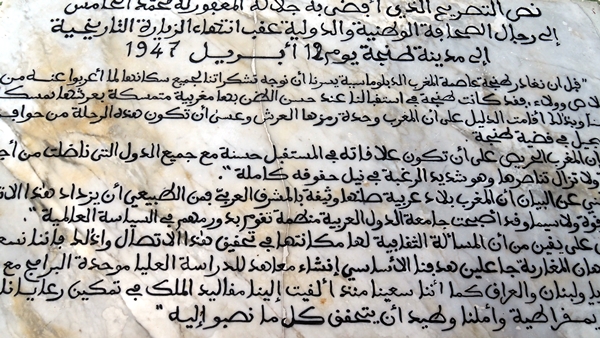 نص التصريح الذي أفضى به جلالة المغفور له محمد الخامس
إلى رجال الصحافة الوطنية والدولية عقب انتهاء الزيارة التاريخية
إلى مدينة طنجة يوم 12 أبريل 1947
"قبل أن نغادر طنجة عاصمة المغرب الدبلوماسية يسرنا أن نوجه تشكراتنا لجميع سكانها لما أعربوا عنه من
لاص وولاء، فقد كانت طنجة في استقبالنا عند حسن الظن بها مغربية متمسكة بعرشها تمسك
نا وبذلك أقامت الدليل على أن المغرب وحدة رمزها العرش وعسى أن تكون هذه الرحلة من حوافـ
جيل في قضية طنجة
وإن المغرب الحريص على أن تكون علاقاته في المستقبل حسنة مع جميع الدول التي ناضلت من أجـ
ولا تزال تناصرها وهو شديد الرغبة في نيل حقوقه كاملة".
ني عن البيان أن المغرب بلاد عربية صلتها وثيقة بالمشرق العربي فمن الطبيعي أن يزداد هذا الاتـ
قوة ولا سيما وقد أصبحت جامعة الدول العربية منظمة تقوم بدور مهم في السياسة العالمية".
ن على يقين من أن المسألة الثقافية لها مكانتها في تحقيق هذا الاتصال ولذلك فإننا نسعـ
هان المغاربة جاعلين هدفنا الأساسي إنشاء معاهد للدراسة العليا موحدة البرامج مع
يا ولبنان والعراق كما أننا سعينا منذ ألقيت إلينا مقاليد الملك في تمكين رعايانا
يمقراطية وأملنا وطيد أن يتحقق كل ما نصبو إليه"